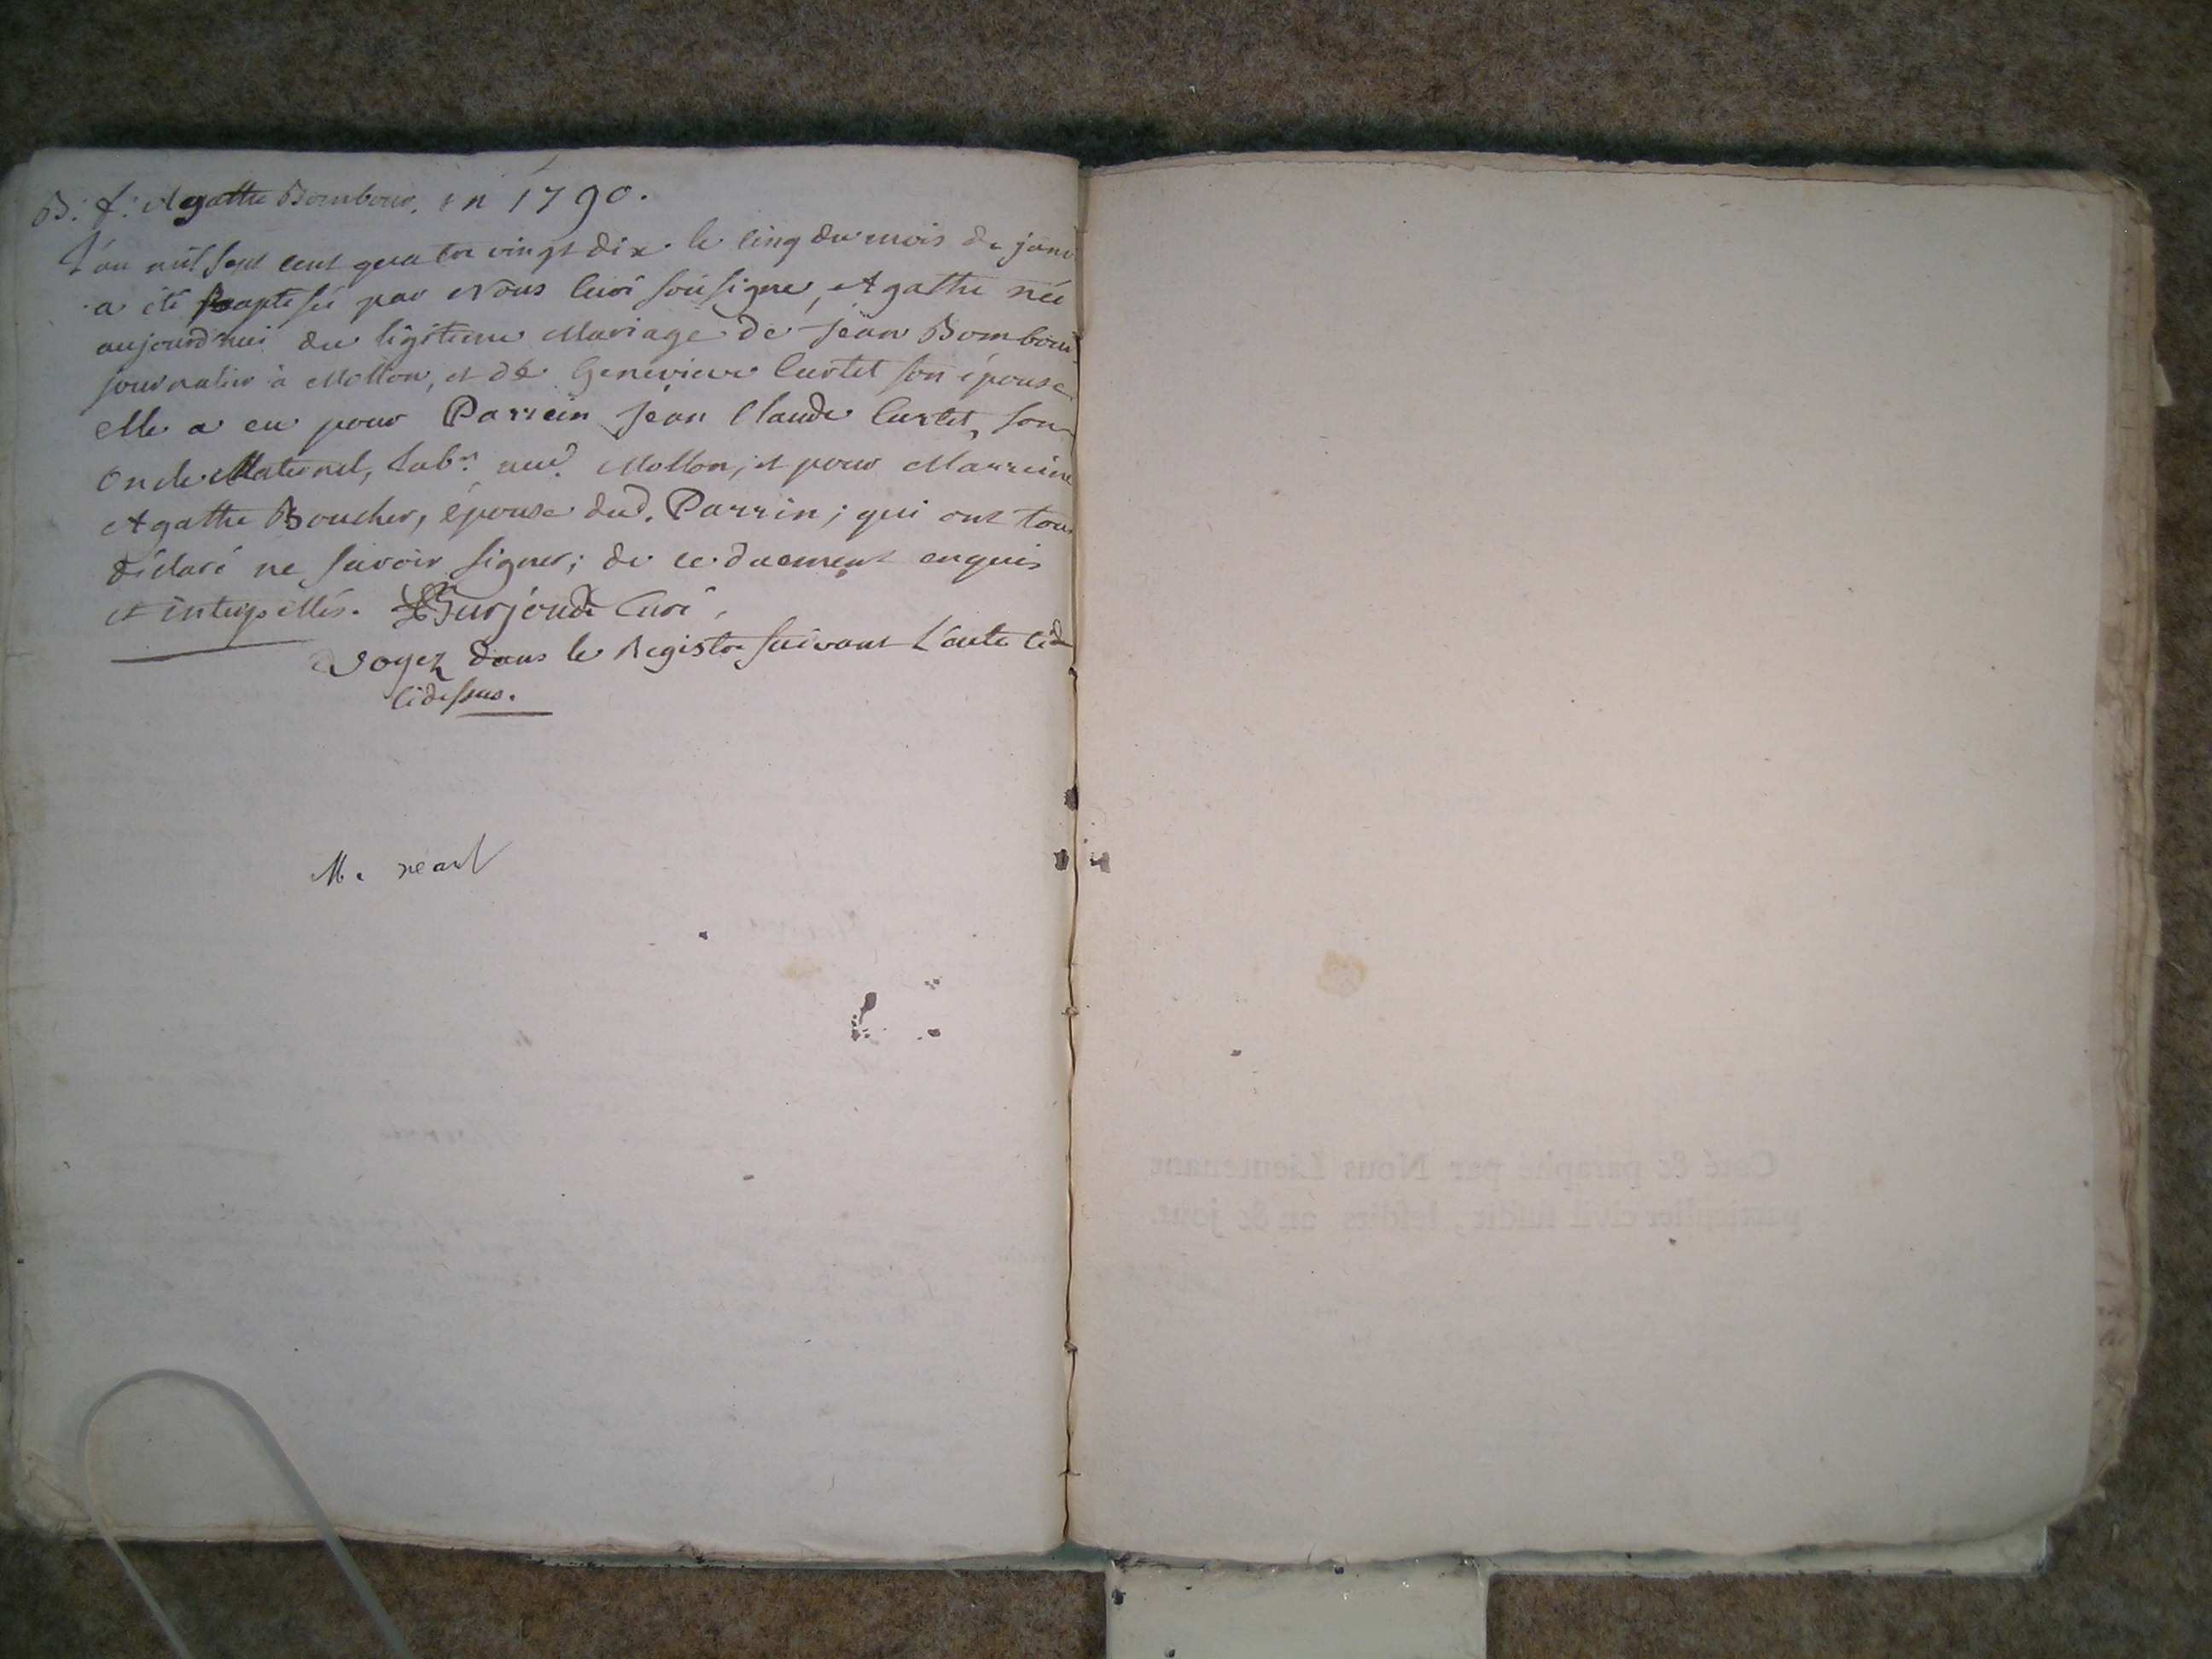 B. f. Agathe Bombour. en 1790.
L'an mil sept cent quatre vingt dix le cinq du mois de janv
a été baptisée par Nous Curé soûsigné, Agathe née
aujourd'hui du légitime Mariage de Jean Bombour
journalier à Mollon, et de Genevieve Curtet son épouse
elle a eu pour Parrein Jean Claude Curtet, son
Oncle Maternel, Labr. aud. Mollon, et pour Marreine
Agathe Boucher, épouse dud. Parrin; qui ont tous
déclaré ne savoir signer; de ce duement enquis
et interpellés. Burjoud Curé,
Voyez dans le Registre suivant L'acte
cidessus.
M. neant
Coté & paraphé par Nous Lieutenant
particulier civil susdit, lesdits an & jour.